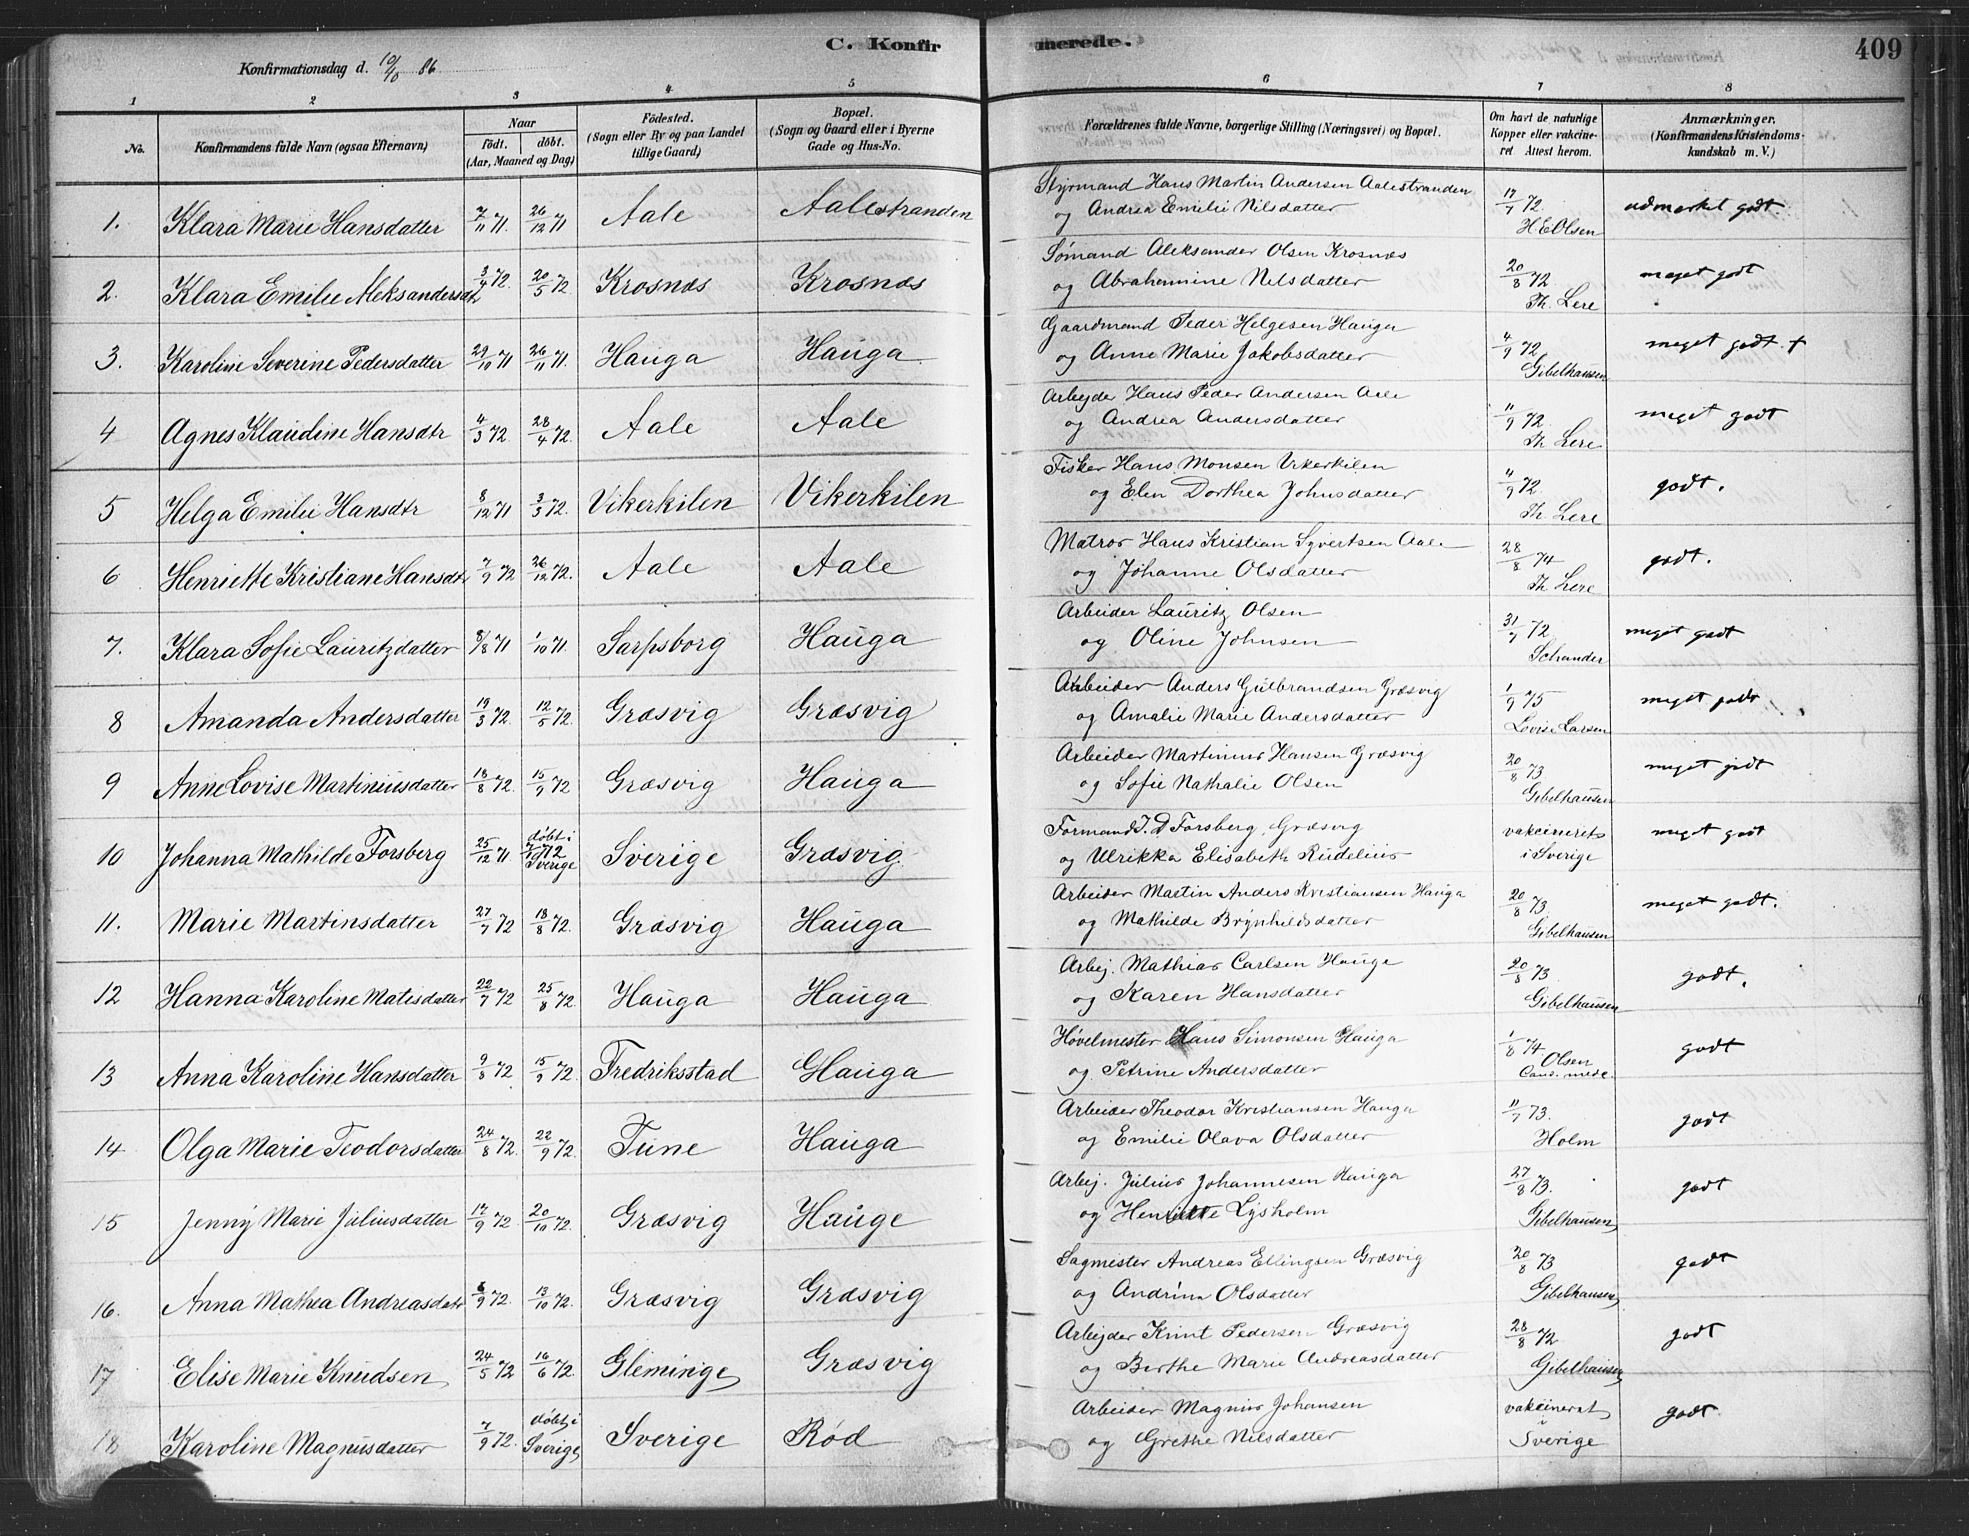 C. Konfirmerede.
409
Konfirmationsdag d. 10/10 86
1 2 3 4 5 6 7 8
No.
Konfirmandens fulde Navn (ogsaa Efternavn)
Naar
födt. döbt.
(Aar, Maaned og Dag)
Födested.
(Sogn eller By og paa Landet
tillige Gaard)
Bopæl.
(Sogn og Gaard eller i Byerne
Gade og Hus-No.
Forældrenes fulde Navne, borgerlige Stilling (Næringsvei) og Bopæl.
Om havt de naturlige
Kopper eller vakcine-
ret Attest herom.
Anmærkninger.
(Konfirmandens Kristendoms-
kundskab m. V.)
1. Klara Marie Hansdatter 7/11 71. 26/12 71 Aale Aalestranden
Styrmand Hans Martin Andersen Aalestranden
og Andrea Emilie Nilsdatter
17/7 72. H E Olsen
udmærket godt.
2. Klara Emilie Aleksandersdtr 3/4 72. 20/5 72. Krosnæs Krosnæs
Sømand Aleksander Olsen Krosnæs
og Abrahamine Nilsdatter
20/8 72. Th. Lere
meget godt
3. Karoline Severine Pedersdatter 29/10 71 26/11 71. Hauga Hauga
Gaardmand Peder Helgesen Hauga
og Anne Marie Jakobsdatter
4/9 72 Gibelhausen
meget godt. +
4 Agnes Klaudine Hansdtr 4/3 72 28/4 72. Aale Aale
Arbejder Hans Peder Andersen Aale
og Andrea Andersdatter
11/9 72. Th Lere
meget godt
5 Helga Emilie Hansdtr 8/12 71 3/3 72. Vikerkilen Vikerkilen
Fisker Hans Monsen Vikerkilen
og Elen Dorthea Johnsdatter
4/9 72. Th Lere
godt.
6 Henriette Kristiane Hansdtr 7/9 72 26/12 72. Aale Aale
Matros Hans Kristian Syvertsen Aale
og Johanne Olsdatter
28/8 74 Th Lere
godt.
7. Klara Sofie Lauritzdatter 8/8 71 1/10 71. Sarpsborg Hauga
Arbeider Lauritz Olsen
og Oline Johnsen
31/7 72. Schander
meget godt
8 Amanda Andersdatter 19/3 72. 12/5 72. Græsvig Græsvig
Arbeider Anders Gulbrandsen Græsvig
og Amalie Marie Andersdatter
1/9 75 Lovise Larsen
meget godt
9 Anne Lovise Martiniusdatter 18/8 72. 15/9 72 Græsvig Hauga
Arbeider Martinius Hansen Græsvig
og Sofie Nathalie Olsen
20/8 73 Gibelhausen
meget godt
10 Johanna Mathilde Forsberg 25/12 71 døbt i 72 Sverige Sverige Græsvig.
Formand J. D Forsberg, Græsvig
og Ulrikka Elisabeth Rudelius
vakcineret i Sverige
meget godt
11. Marie Martinsdatter 27/7 72 18/8 72. Græsvig Hauga
Arbeider Martin Anders Kristiansen Hauga
og Mathilde Brynhildsdatter
20/8 73. Gibelhausen
meget godt.
12 Hanna Karoline Matisdatter 22/7 72 25/8 72. Hauga Hauga
Arbej. Mathias Carlsen Hauge
og Karen Hansdatter
20/8 73 Gibelhausen
godt.
13 Anna Karoline Hansdatter 9/8 72 15/9 72. Fredriksstad Hauga
Høvelmester Hans Simonsen Hauga
og Petrine Andersdatter
1/8 74 Olsen Cand. med.
godt
14 Olga Marie Teodorsdatter 24/8 72. 22/9 72. Tune Hauga
Arbeider Theodor Kristiansen Hauga
og Emilie Olava Olsdatter
11/7 73. Holm
godt
15 Jenny Marie Juliusdatter 17/9 72. 20/10 72. Græsvig Hauge
Arbej. Julius Johannesen Hauga
og Henriette Lysholm
27/8 73. Gibelhausen
godt
16. Anna Mathea Andreasdatr 6/9 72. 13/10 72. Græsvig Græsvig
Sagmester Andreas Ellingsen Græsvig
og Andrina Olsdatter
20/8 73 Gibelhausen
godt
17 Elise Marie Knudsen 24/5 72 16/6 72. Gleminge Græsvig
Arbejder Knut Pedersen Græsvig
og Berthe Marie Andreasdatter
28/8 72 Gibelhausen
godt
18 Karoline Magnusdatter 7/9 72. døbt i Sverige Sverige Rød
Arbeider Magnus Johansen
og Grethe Nilsdatter
vakcinerat i Sverige
godt